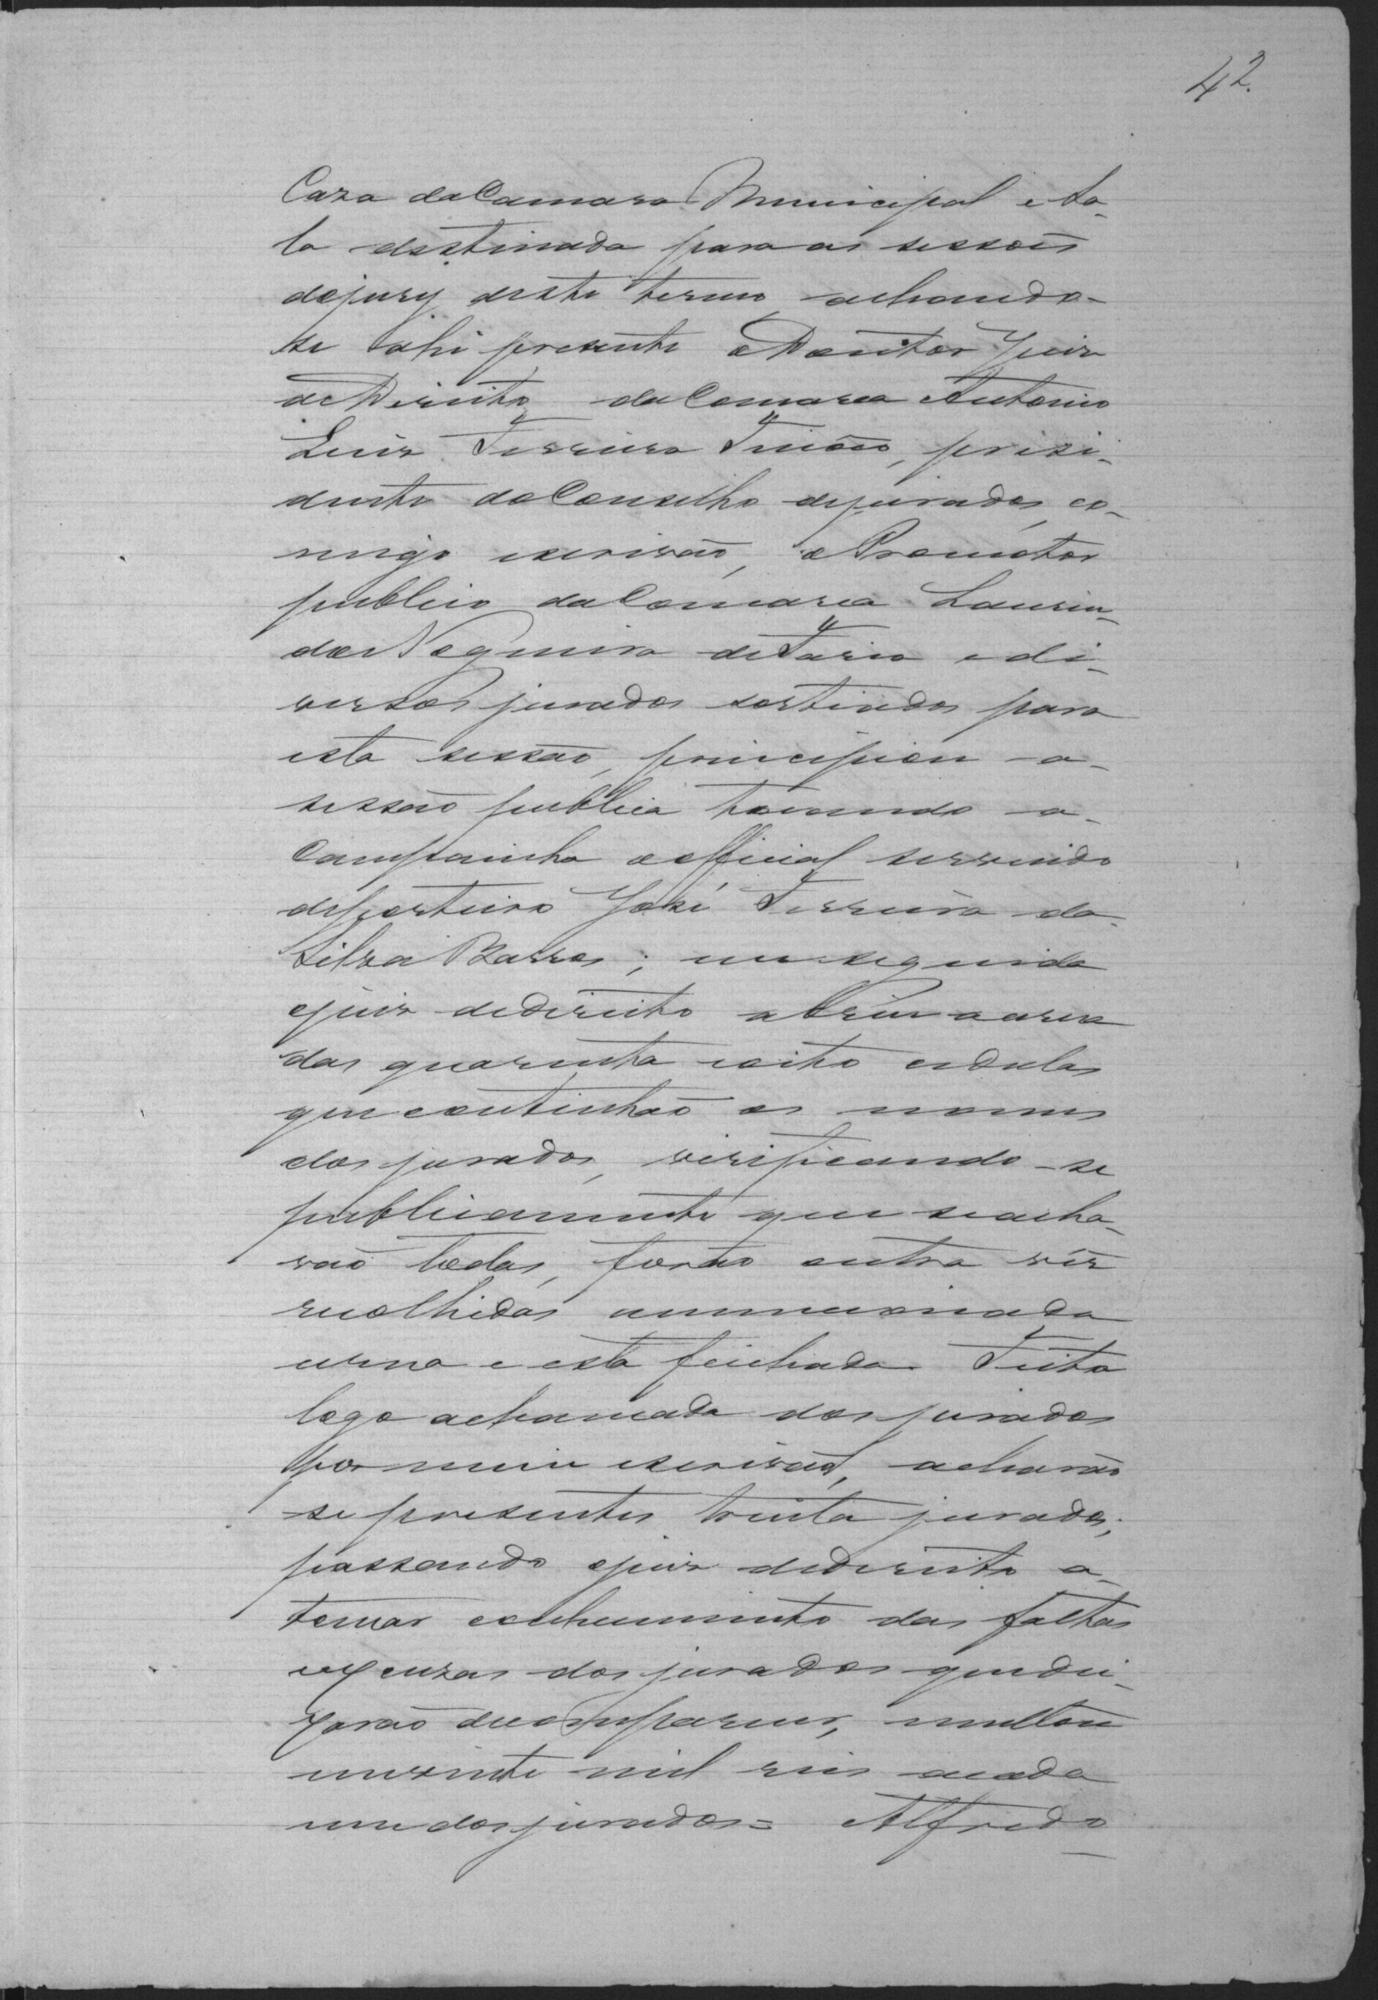 42.
Caza da Camara Municipal e Sa-
la destinada para as sessões
de jury deste termo, achando-
se ahi presente o Doutor Juiz
de Direito da Comarca Antonio
Luiz Ferreira Tinôco, presi-
dente do Conselho de jurados, co-
migo escrivão, o Promotor
publico da Comarca Laurin-
do Nogueira de Faria e di-
versos jurados sorteados para
esta sessão, principiou a
sessão publica tocando a
Campainha o official servindo
de porteiro José Ferreira da
Silva Barros; em seguida
o juiz de direito abriu a urna
das quarenta e oito cedulas
que continhão os nomes
dos jurados, verificando-se
publicamente que se acha-
vão todas, forão outra vez
recolhidas a mencionada
urna e esta feichada. Feita
logo a chamada dos jurados
por mim escrivão, acharão
se presentes trinta jurados;
passando o juiz de direito a
tomar conhecimento das faltas
e escuzas dos jurados que dei-
xarão de comparecer, multou
em vinte mil reis a cada
um dos jurados = Alfredo